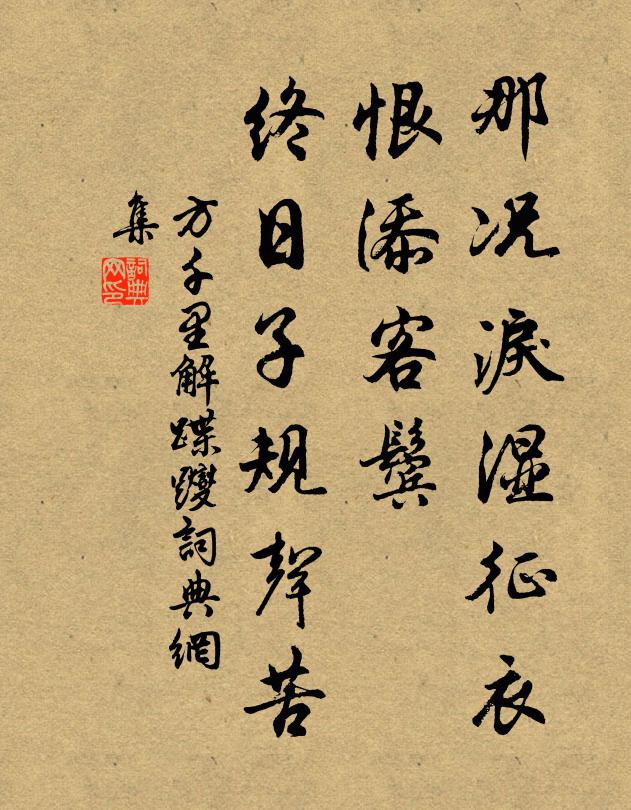 那况淚湿征衣
恨添客鬓
終日子規聲苦
方千里解蹀躞詞典網
集
詞典網印